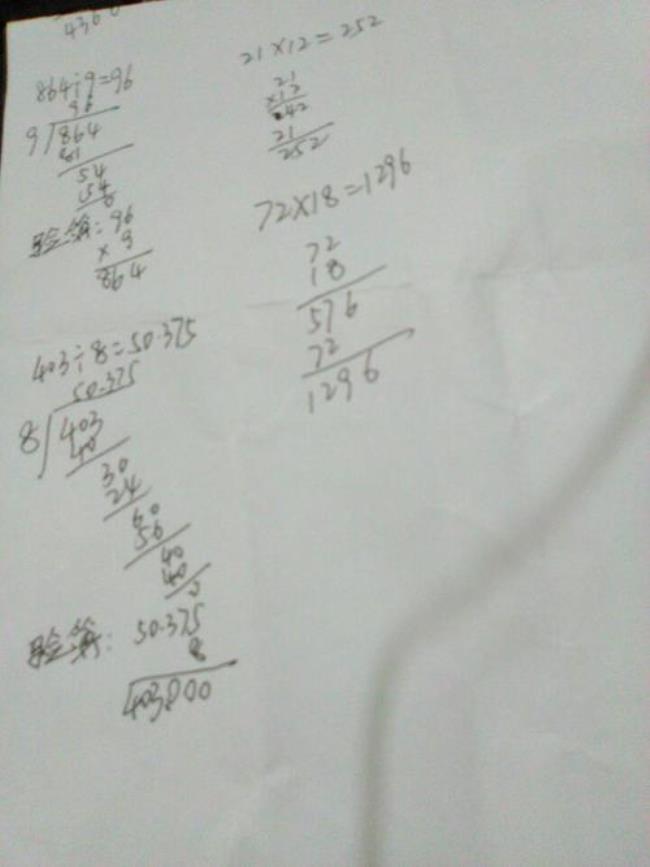 4360
864÷9=96
96
9 864
81
54
54
0
验算: 96
× 9
864
403÷8=50.375
50.375
8 403
40
30
24
60
56
40
40
0
验算: 50.375
8
403.000
21×12=252
21
×12
42
21
252
72×18=1296
72
18
576
72
1296